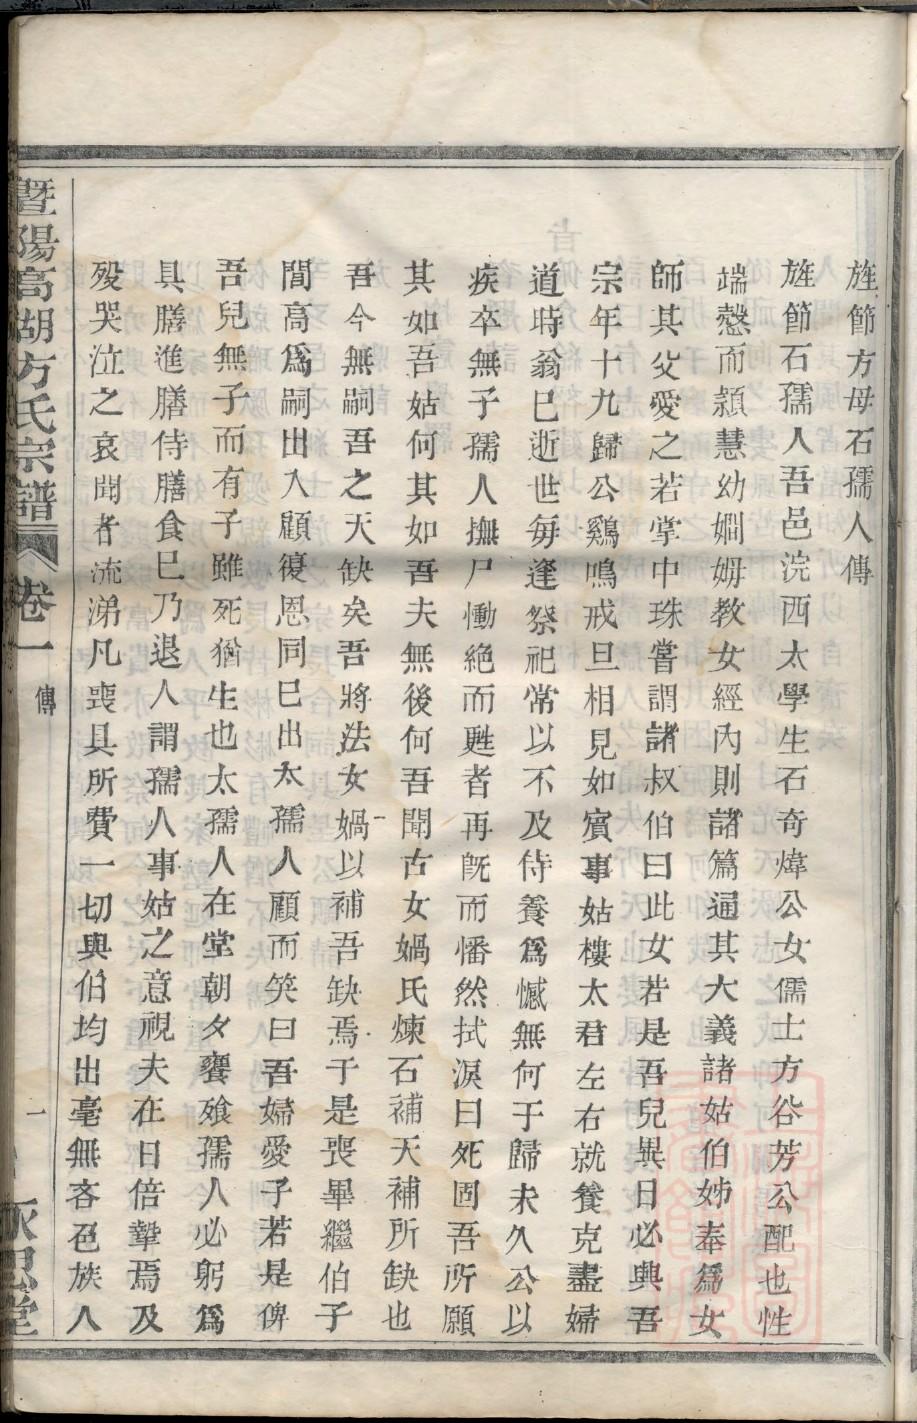 旌節方母石孺人傳
旌節石孺人吾邑浣西太學生石奇煒公女儒士方谷芳公配也性
端慤而潁慧幼嫺姆教女經內則諸篇通其大義諸姑伯姊奉爲女
師其父愛之若掌中珠嘗謂諸叔伯曰此女若是吾兒異日必興吾
宗年十九歸公鷄鳴戒旦相見如賓事姑樓太君左右就養克盡婦
道時翁巳逝世每逢祭祀常以不及侍養爲憾無何于歸未久公以
疾卒無子孺人撫尸慟絶而甦者再旣而憣然拭淚曰死固吾所願
其如吾姑何其如吾夫無後何吾聞古女媧氏煉石補天補所缺也
吾今無嗣吾之天缺矣吾將法女媧以補吾缺焉于是喪畢繼伯子
閬高爲嗣出入顧復恩同巳出太孺人顧而笑曰吾婦愛子若是俾
吾兒無子而有子雖死猶生也太孺人在堂朝夕饔飱孺人必躬爲
具膳進膳侍膳食巳乃退人謂孺人事姑之意視夫在日倍摯焉及
歿哭泣之哀聞者流涕凡喪具所費一切與伯均出毫無吝色族人
暨陽高湖方氏宗譜 卷一 傳 一 永思堂